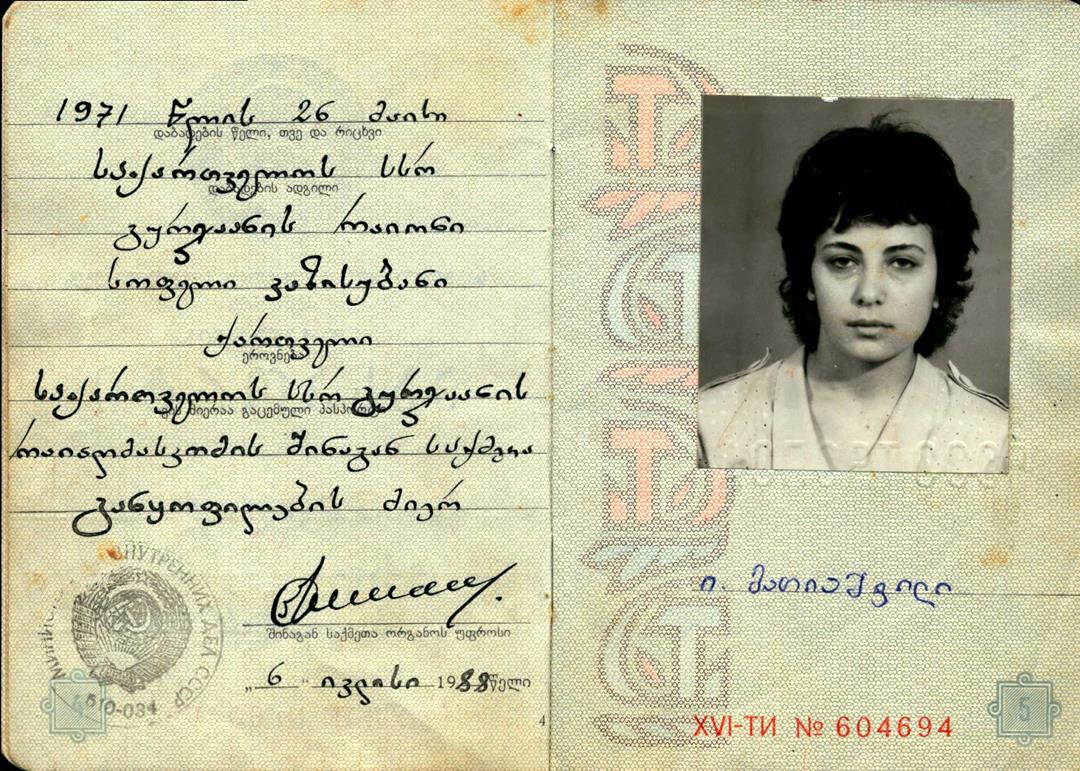 1971 წლის 26 მაისი
დაბადების წელი, თვე და რიცხვი
საქართველოს სსრ
დაბადების ადგილი
გურჯაანის რაიონი
სოფელი ვაზისუბანი
ქართველი
ეროვნება
საქართველოს სსრ გურჯაანის
ვის მიერაა გაცემული პასპორტი
რაიაღმასკომის შინაგან საქმეთა
განყოფილების მიერ
შინაგან საქმეთა ორგანოს უფროსი
„ 6 “ ივლისი 1988 წელი
ВНУТРЕННИХ ДЕЛ СССР
510-034
4
ი. მათიაშვილი
XVI-ТИ № 604694
5